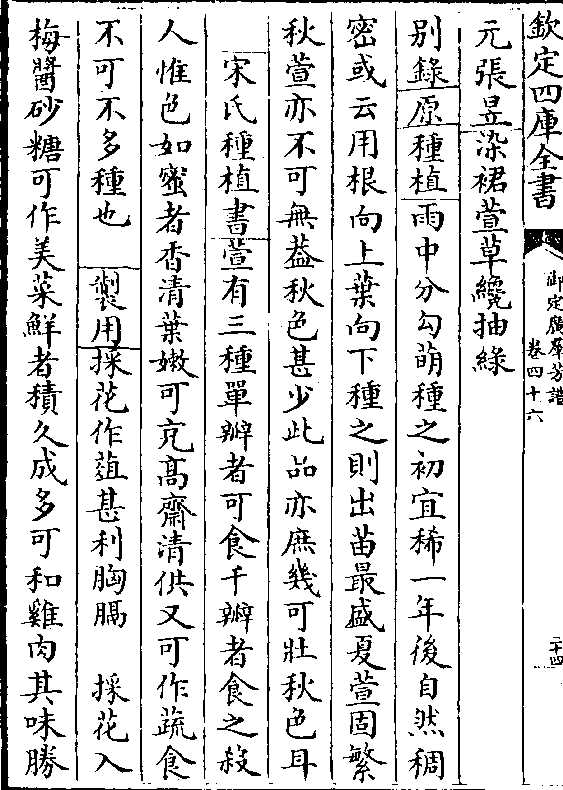 欽定四庫全書
御定廣羣芳譜
卷四十六
二十四
元張昱染裙萱草纔抽綠
别錄原種植雨中分勾萌種之初宜稀一年後自然稠
密或云用根向上葉向下種之則出苗最盛夏萱固繁
秋萱亦不可無葢秋色甚少此品亦庶幾可壯秋色耳
宋氏種植書萱有三種單瓣者可食千瓣者食之殺
人惟色如蜜者香清葉嫩可充髙齋清供又可作蔬食
不可不多種也 製用採花作葅甚利胸膈 採花入
梅醬砂糖可作美菜鮮者積久成多可和雞肉其味勝